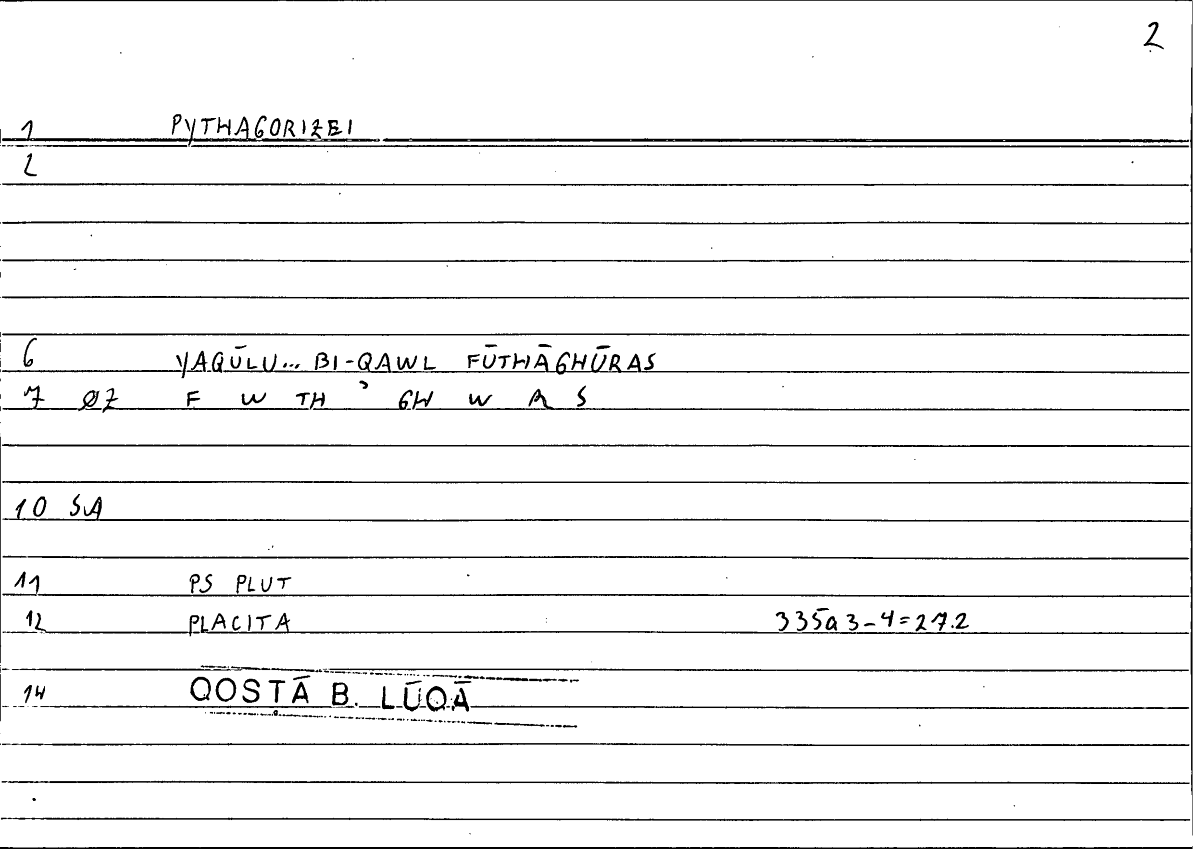 2
1 PYTHAGORIZEI
2
6 YAQŪLU... BI-QAWL FŪTHĀGHŪRAS
7 ØZ F W TH ʾ GH W R S
10 SA
11 PS PLUT
12 PLACITA 335a3-4=27.2
14 QOSṬĀ B. LŪQĀ